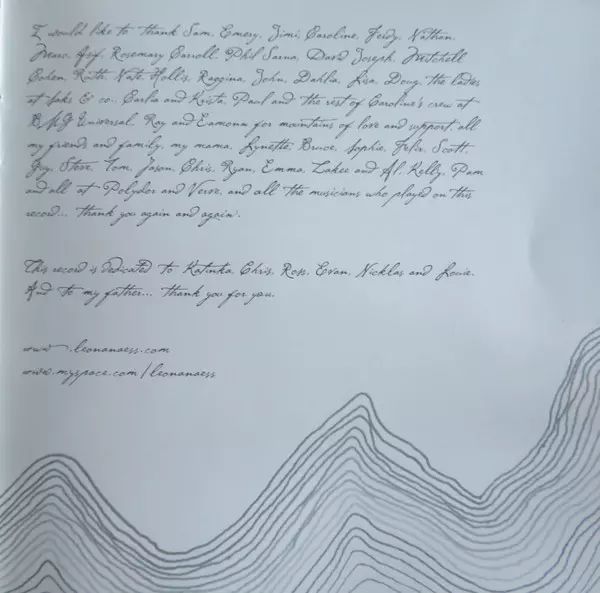 I would like to thank Sam, Emery, Jimi, Caroline, Ferdy, Nathan,
Marc, Asif, Rosemary Carroll, Phil Sarna, David Joseph, Mitchell
Cohen, Ruth, Nate Hollis, Raggina, John, Dahlia, Lisa, Doug, the ladies
at Saks & co., Carlia and Krista, Paul and the rest of Caroline's crew at
BMG Universal, Ray and Eamonn for mountains of love and support, all
my friends and family, my mama, Lynette, Bruce, Sophie, Felix, Scott,
Guy, Steve, Tom, Jason, Chris, Ryan, Emma, Lakee and Al, Kelly, Pam
and all at Polydor and Verve, and all the musicians who played on this
record... thank you again and again.
This record is dedicated to Katinka, Chris, Ross, Evan, Nicklas and Louie.
And to my father... thank you for you.
www.leonanaess.com
www.myspace.com/leonanaess